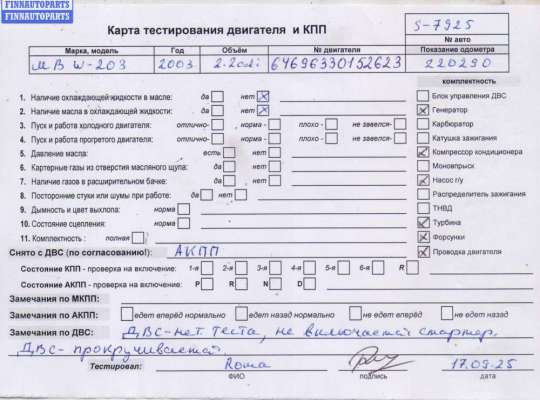 FINNAUTOPARTS
FINNAUTOPARTS
Карта тестирования двигателя и КПП
S-7925
№ авто
Марка, модель Год Объём № двигателя Показание одометра
MB W-203 2003 2.2cdi 64696330152623 220290
комплектность
1. Наличие охлаждающей жидкости в масле: да нет
Блок управления ДВС
2. Наличие масла в охлаждающей жидкости: да нет
Генератор
3. Пуск и работа холодного двигателя: отлично- норма - плохо - не завелся-
Карбюратор
4. Пуск и работа прогретого двигателя: отлично- норма - плохо - не завелся-
Катушка зажигания
5. Давление масла: есть нет
Компрессор кондиционера
6. Картерные газы из отверстия масляного щупа: да нет
Моновпрыск
7. Наличие газов в расширительном бачке: да нет
Насос г/у
8. Посторонние стуки или шумы при работе: да нет
Распределитель зажигания
9. Дымность и цвет выхлопа: норма
ТНВД
10. Состояние сцепления: норма
Турбина
11. Комплектность : полная
Форсунки
Снято с ДВС (по согласованию!): АКПП
Проводка двигателя
Состояние КПП - проверка на включение: 1-я 2-я 3-я 4-я 5-я 6-я R
Состояние АКПП - проверка на включение: P R N D
Замечания по МКПП:
Замечания по АКПП: едет вперёд нормально едет назад нормально не едет вперёд не едет назад
Замечания по ДВС: ДВС-нет теста, не включается стартер.
ДВС- прокручивается.
Тестировал: Roma 17.09.25
ФИО подпись дата